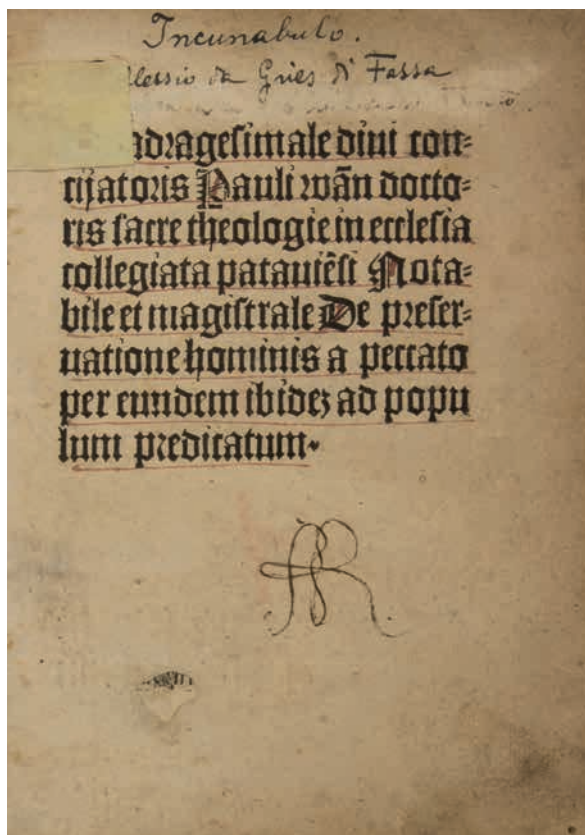 Incunabulo.
lessio da Gries di Fassa
adrageſimale diui con=
cijatoris Pauli wān docto=
ris ſacre theologie in eccleſia
collegiata patauiēſi Nota=
bile et magiſtrale De preſer=
uatione hominis a peccato
per eundem ibidez ad popu
lum predicatum.
AR